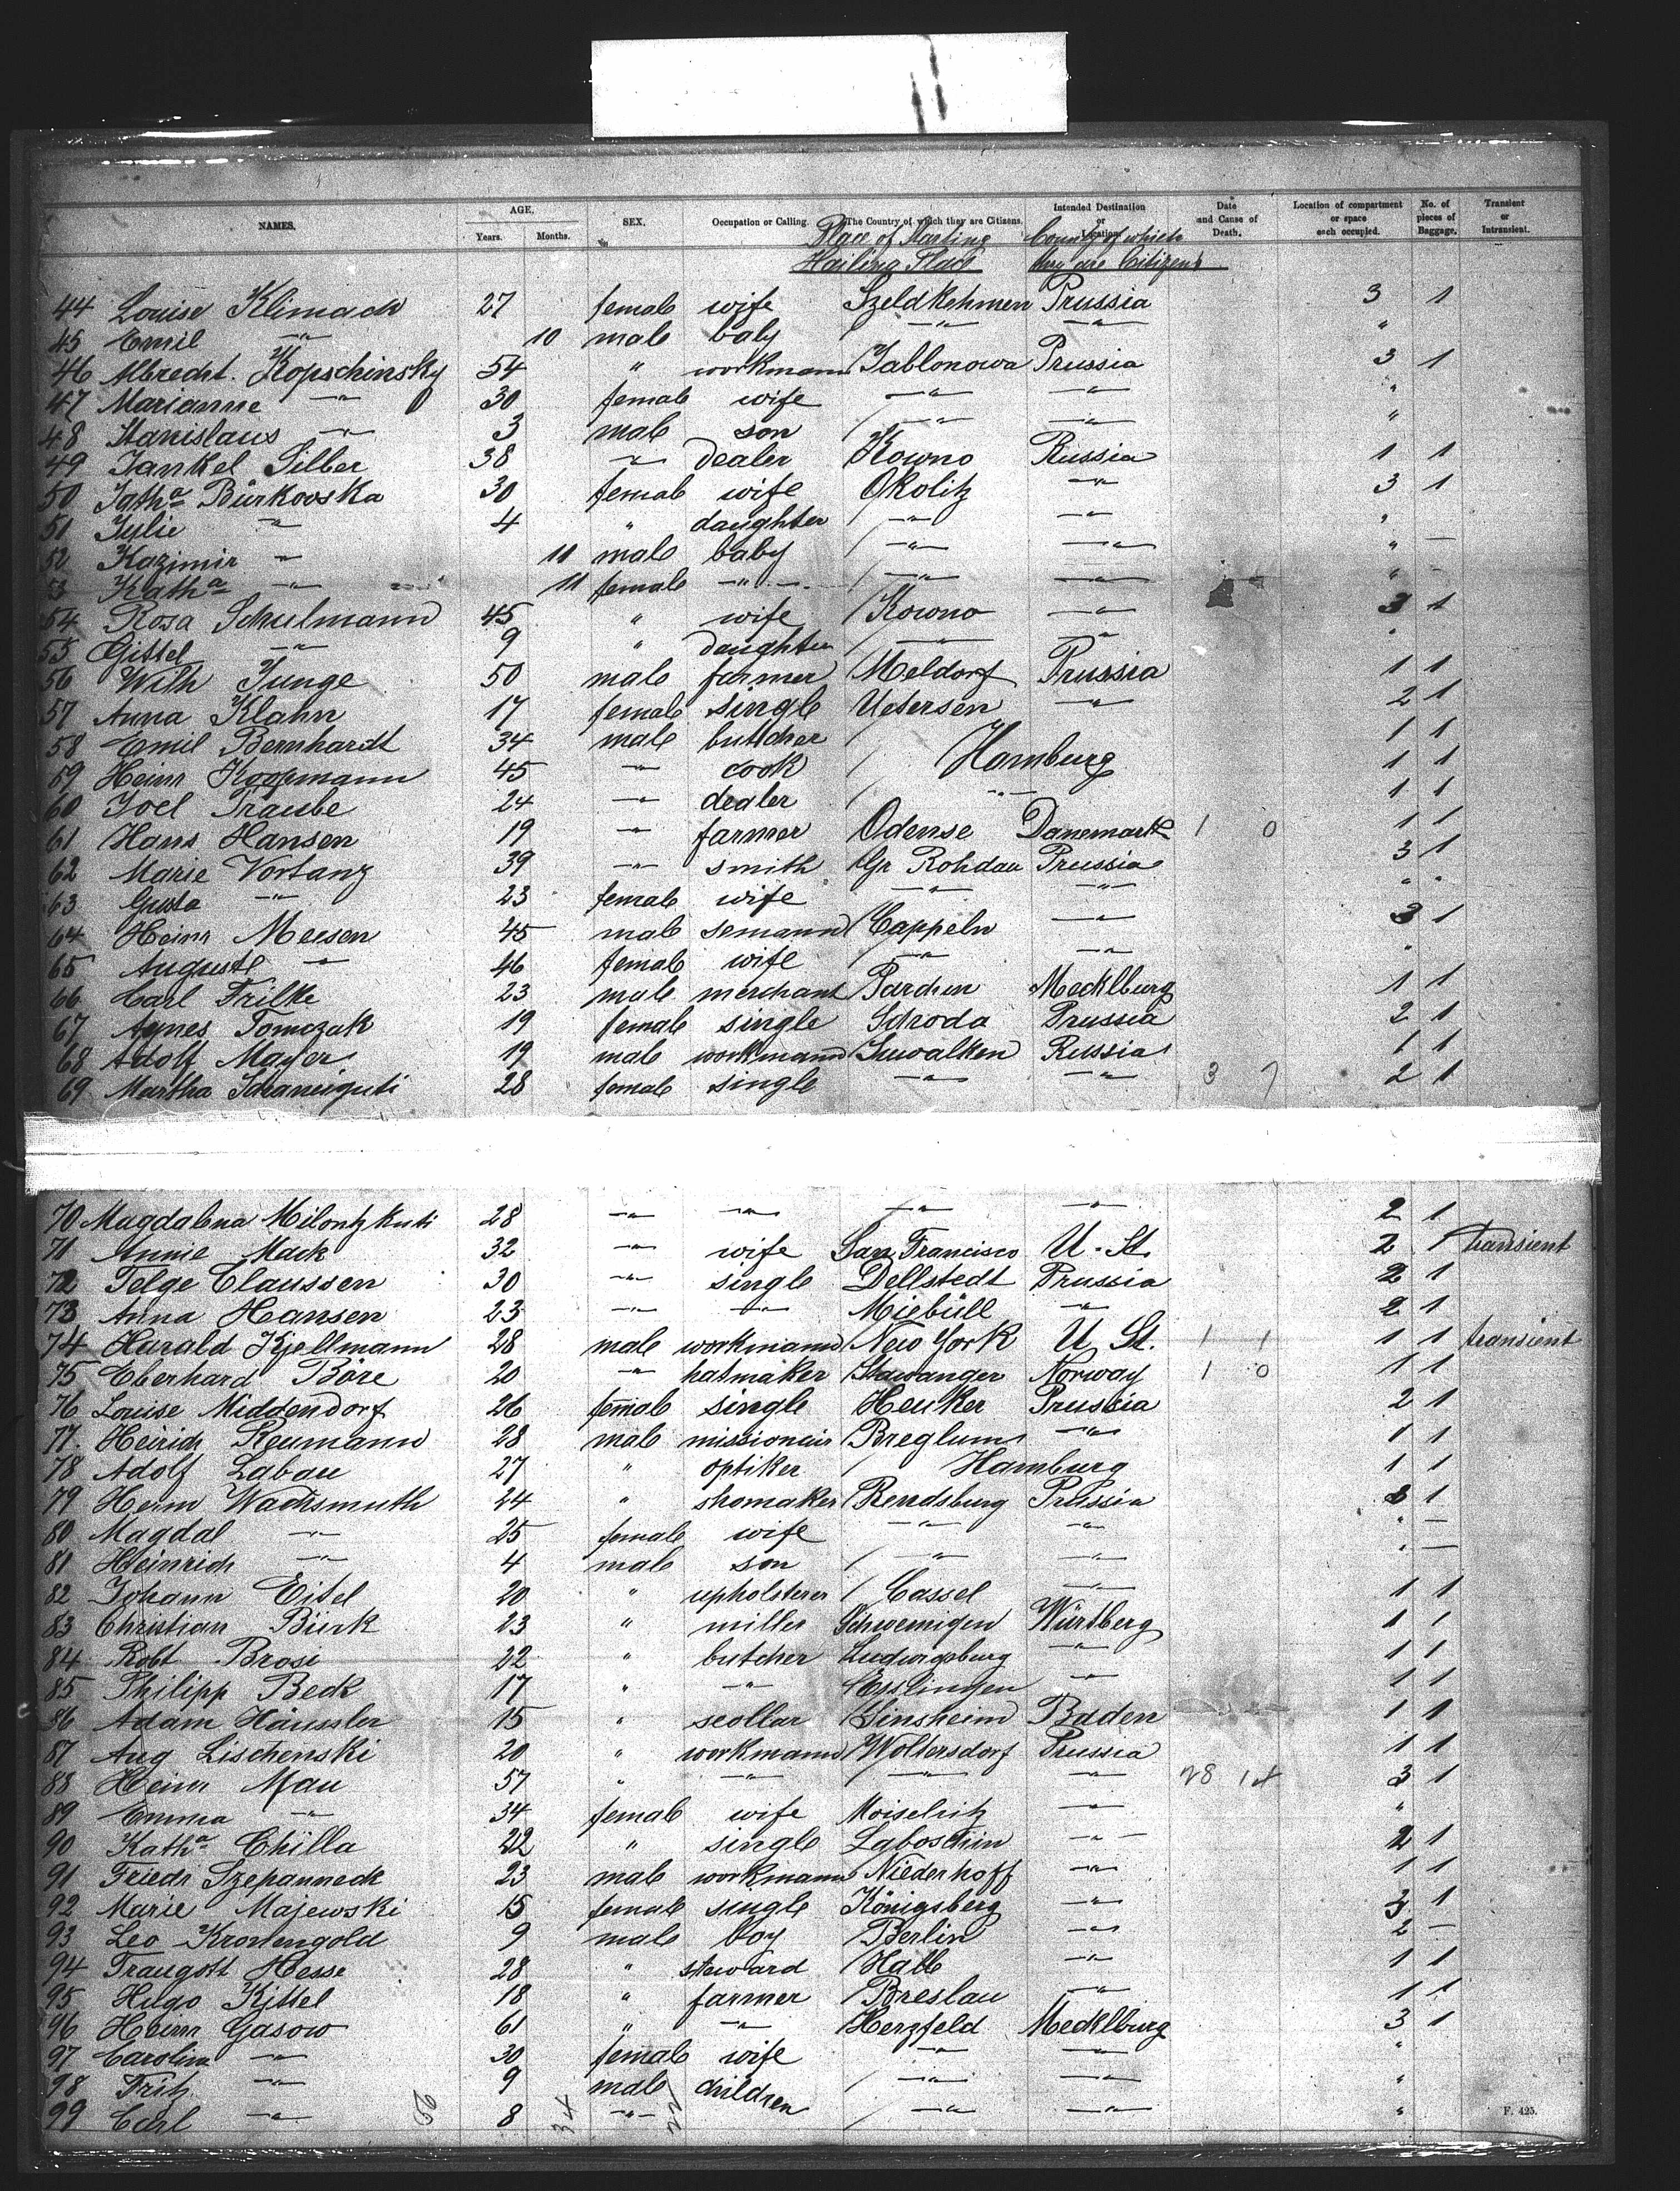 NAMES. AGE. Years. Months. SEX. Occupation or Calling. The Country of which they are Citizens. Intended Destination or Location. Date and Cause of Death. Location of compartment or space each occupied. No. of pieces of Baggage. Transient or Intransient.
Place of Starting Country of which
Hailing Place they are Citizens
44 Louise Klimach 27 female wife Szeldkehmen Prussia 3 1
45 Emil —"— 10 male baby —"— —"— "
46 Albrecht. Kopschinsky 54 " workmann Jablonowa Prussia 3 1
47 Marianne —"— 30 female wife —"— —"— "
48 Stanislaus —"— 3 male son —"— —"— "
49 Jankel Silber 38 —"— dealer Kowno Russia 1 1
50 Kath.a Burkovska 30 female wife Okolitz —"— 3 1
51 Julie —"— 4 " daughter —"— —"— "
52 Kazimir —"— 11 male baby —"— —"— " —
53 Kath.a —"— 11 female —"— —"— —"— " —
54 Rosa Schulmann 45 " wife Kowno —"— 3 1
55 Gittel —"— 9 " daughter —"— —"— "
56 Wilh Junge 50 male farmer Meldorf Prussia 1 1
57 Anna Klahn 17 female single Uetersen —"— 2 1
58 Emil Bernhardt 34 male buttcher 1 1
59 Heinr Koopmann 45 —"— cook Hamburg 1 1
60 Joel Traube 24 —"— dealer —"— 1 1
61 Hans Hansen 19 —"— farmer Odense Danemark 1 0 1 1
62 Marie Vortanz 39 —"— smith Gr Rohdau Prussia 3 1
63 Gusta —"— 23 female wife —"— —"— " "
64 Heinr Meesen 45 male semann Cappeln —"— 3 1
65 Auguste —"— 46 female wife —"— —"— "
66 Carl Frilke 23 male merchant Parchen Mecklburg 1 1
67 Agnes Tomczak 19 female single Schroda Prussia 2 1
68 Adolf Mayer 19 male workmann Suwalken Russia 1 1
69 Martha 28 female single —"— —"— 3 7 2 1
70 Magdalena 28 —"— —"— —"— —"— 2 1
71 Annie Mack 32 —"— wife San Francisco U. St. 2 1 transient
72 Telge Claussen 30 —"— single Dellstedt Prussia 2 1
73 Anna Hansen 23 —"— —"— Miebüll —"— 2 1
74 Harald Kjellmann 28 male workmann New York U St. 1 1 1 1 transient
75 Eberhard Böre 20 —"— hatmaker Stawanger Norway 1 0 1 1
76 Louise Middendorf 26 female single Heuker Prussia 2 1
77. Heirich Reumann 28 male missionair Breglum —"— 1 1
78 Adolf Labau 27 " optiker Hamburg 1 1
79 Heinr Wachsmuth 24 " shomaker Rendsburg Prussia 3 1
80 Magdal —"— 25 female wife —"— —"— " —
81 Heinrich —"— 4 male son —"— —"— " —
82 Johann Eitel 20 " upholsterer Cassel —"— 1 1
83 Christian Bürk 23 " miller Schwenigen Würtberg 1 1
84 Robt Brosi 22 " butcher Ludwigsburg —"— 1 1
85 Philipp Beck 17 " —"— Esslingen —"— 1 1
86 Adam Häussler 15 " scollar Sinsheim Baden 1 1
87 Aug Lischenski 20 " workmann Woltersdorf Prussia 1 1
88 Heinr Mau 57 " —"— —"— —"— 28 14 3 1
89 Emma —"— 34 female wife Moiselritz —"— "
90 Kath.a Chilla 22 " single Laboschin —"— 2 1
91 Friedr Szepanneck 23 male workmann Niederhoff —"— 1 1
92 Marie Majewski 15 female single Königsberg —"— 3 1
93 Leo Kronengold 9 male boy Berlin —"— 2 —
94 Traugott Hesse 28 " steward Halle —"— 1 1
95 Hugo Kittel 18 " farmer Breslau —"— 1 1
96 Heinr Gasow 61 " —"— Herzfeld Mecklburg 3 1
97 Carolina —"— 30 female wife —"— —"— "
98 Fritz —"— 9 male children —"— —"— "
99 Carl —"— 8 —"— —"— —"— "
34
F. 425.